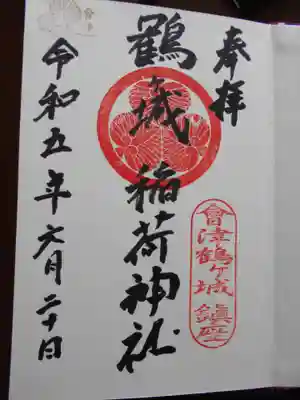 奉拝
會津鶴ヶ城 鎮座
鶴城稲荷神社
令和五年六月二十日